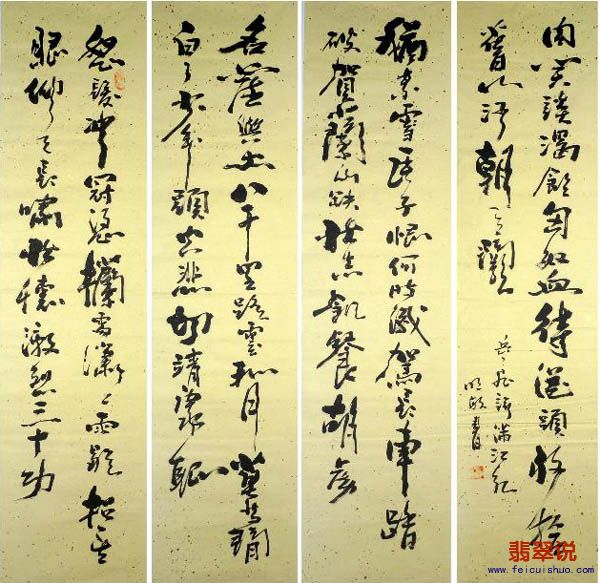 怒髮衝冠憑欄處瀟瀟雨歇抬望
眼仰天長嘯壯懷激烈三十功
名塵與土八千里路雲和月莫等閒
白了少年頭空悲切靖康恥
猶未雪臣子恨何時滅駕長車踏
破賀蘭山缺壯志飢餐胡虜
肉笑談渴飲匈奴血待從頭收拾
舊山河朝天闕
岳飛詞滿江紅
書
翡翠说
www.feicuishuo.com